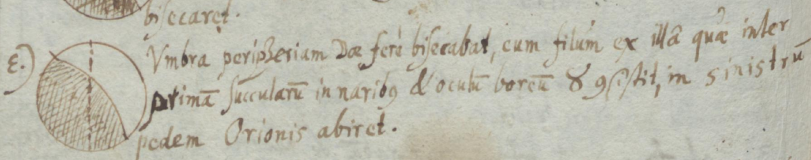 bisecaret.
ε.) Vmbra peripheriam Dae ferè bisecabat, cum filum ex illâ quae inter
primā succularū in naribꝫ & oculū boreū ♉ 9sistit, in sinistrū
pedem Orionis abiret.